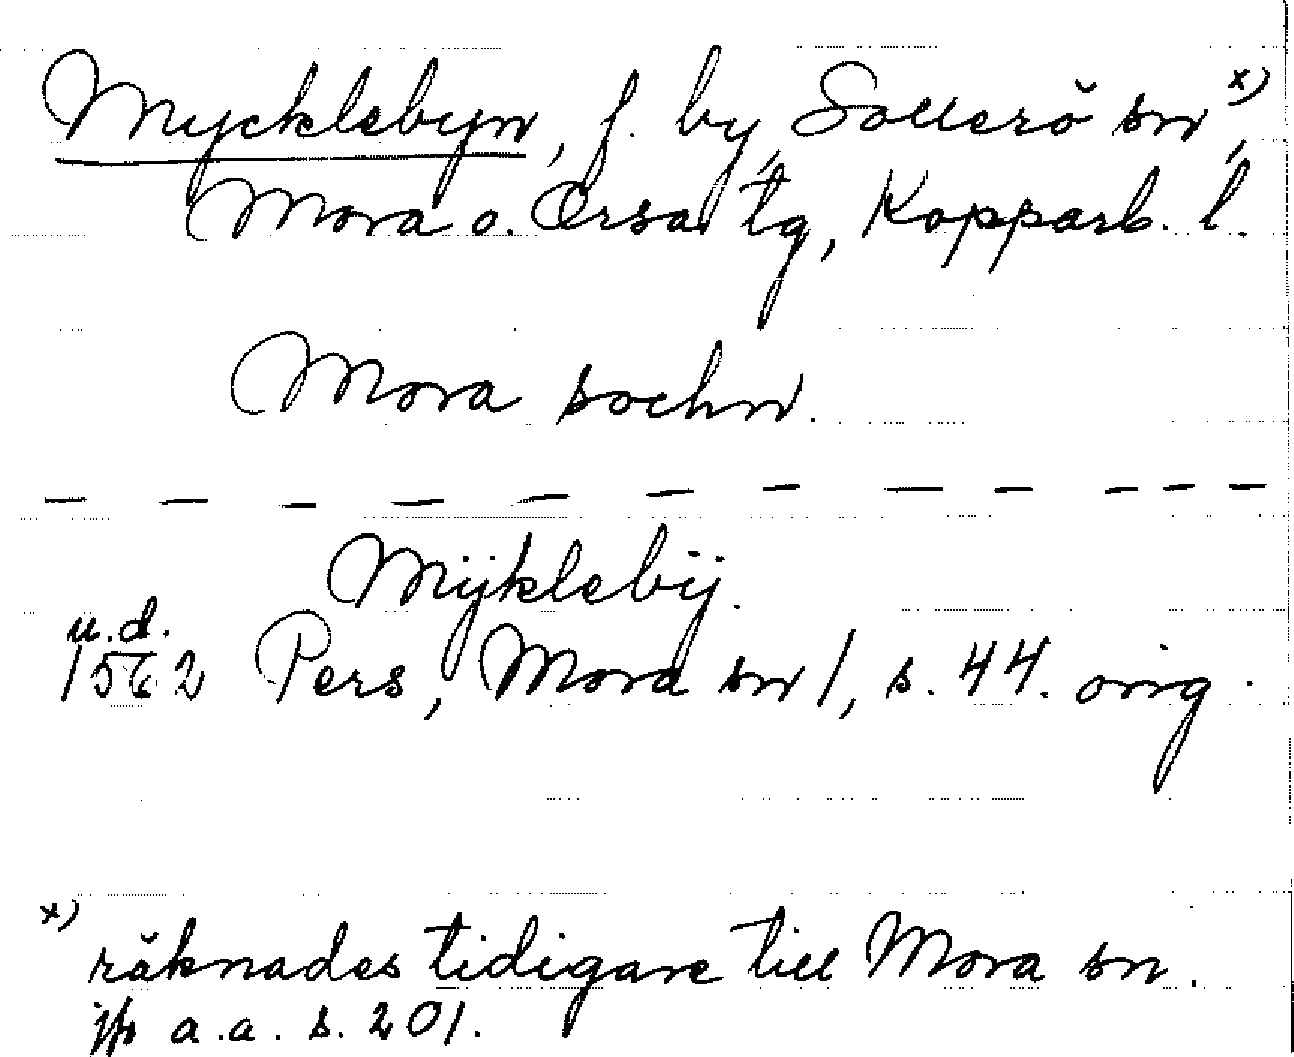 Mycklebyn, f. by, Sollerö sn x),
Mora o. Orsa tg, Kopparb. l.
Mora sochn.
— — — — — — — — — — — —
Mÿklebÿ.
u.d.
1562 Pers, Mora sn 1, s. 44. orig.
x)
räknades tidigare till Mora sn.
jfr a.a. s. 201.